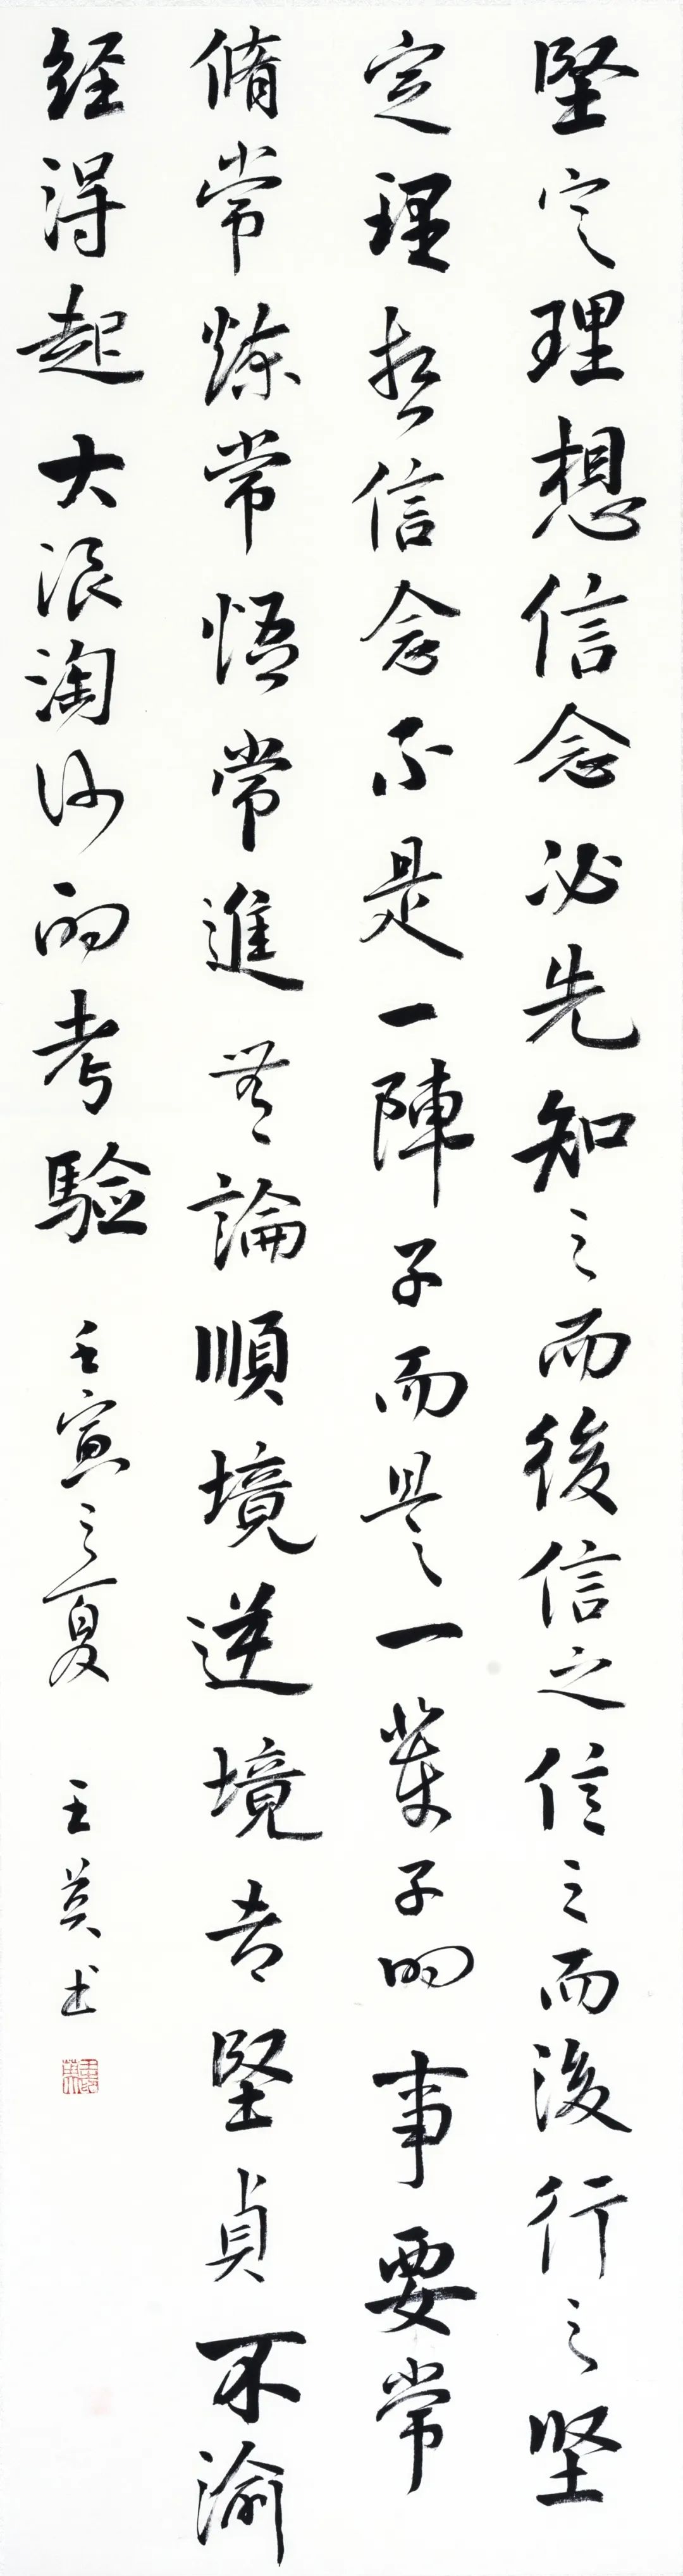 堅定理想信念必先知之而後信之信之而後行之坚
定理想信念不是一陣子而是一輩子的事要常
脩常煉常悟常進無論順境逆境去堅貞不渝
经得起大浪淘沙的考驗 壬寅之夏 王英书